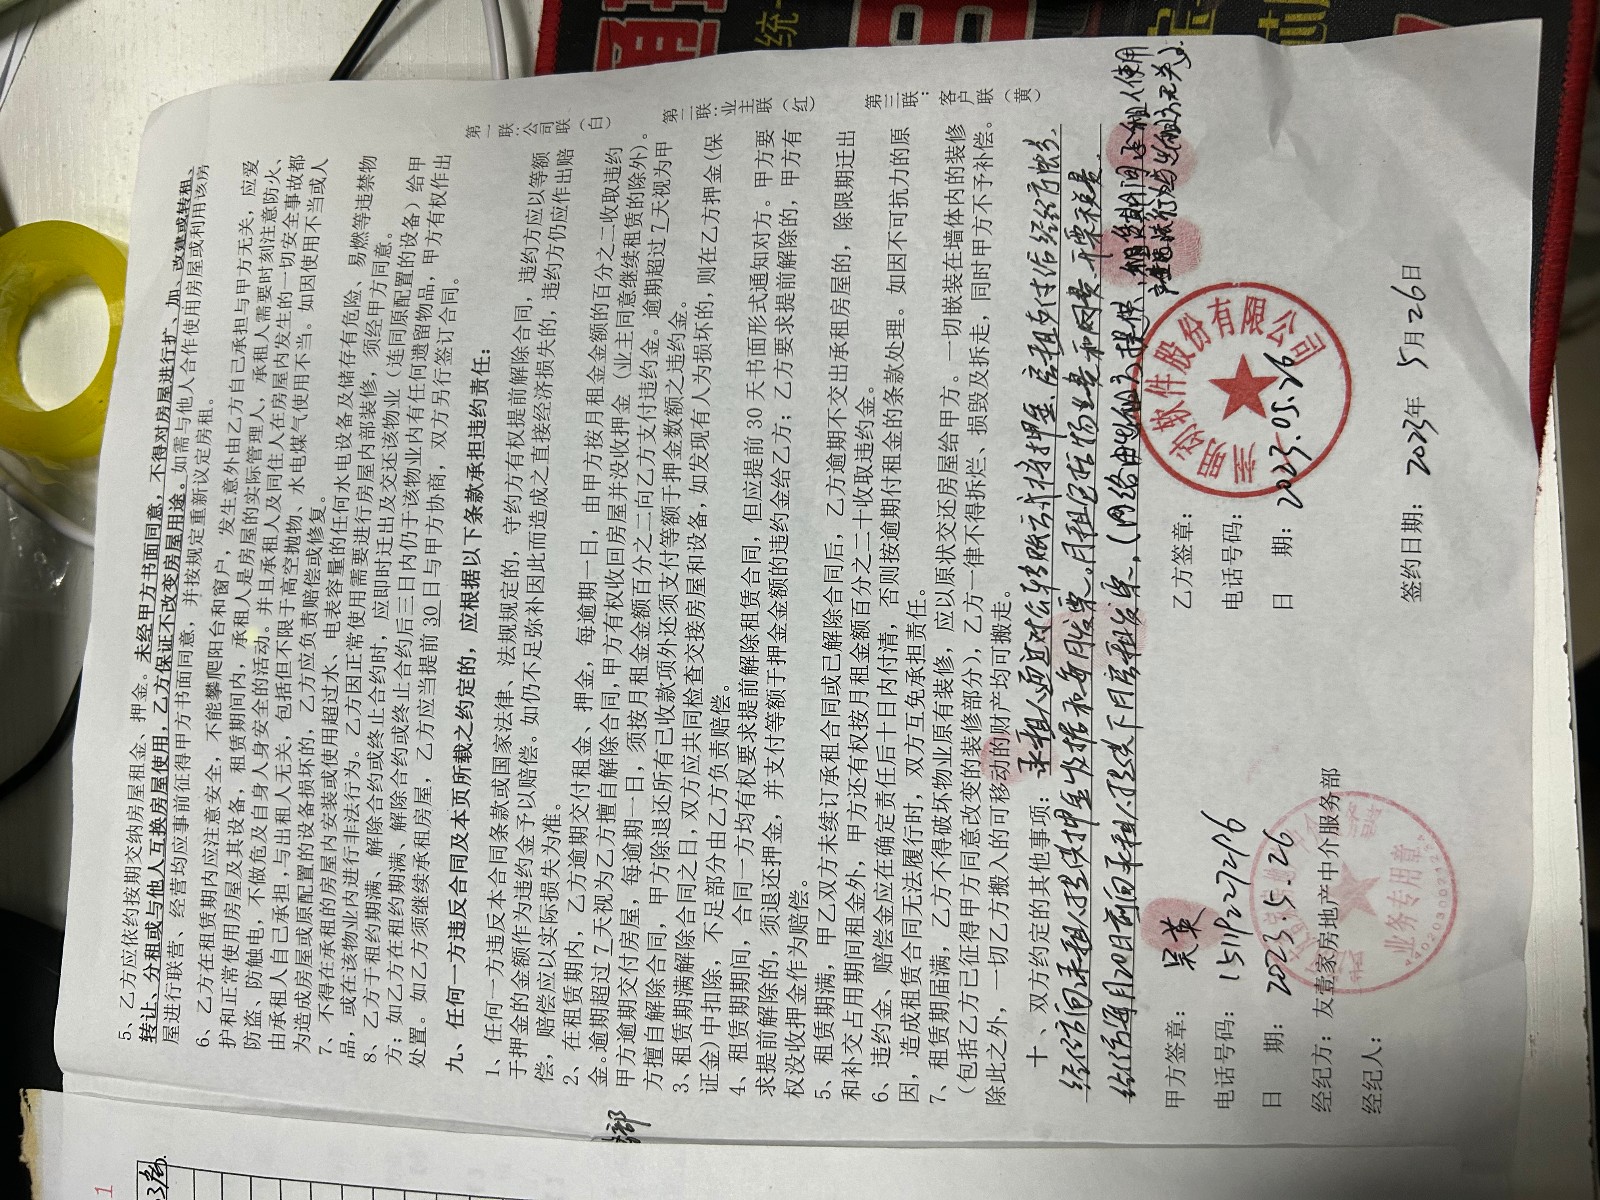 5、乙方应依约按期交纳房屋租金、押金。未经甲方书面同意，不得对房屋进行扩、加、改建或转租、
转让、分租或与他人互换房屋使用，乙方保证不改变房屋用途。如需与他人合作使用房屋或利用该房
屋进行联营、经营均应事前征得甲方书面同意，并按规定重新议定房租。
6、乙方在租赁期内应注意安全，不能攀爬阳台和窗户，发生意外由乙方自己承担与甲方无关，应爱
护和正常使用房屋及其设备，租赁期间内，承租人是房屋的实际管理人，承租人需要时刻注意防火、
防盗、防触电，不做危及自身人身安全的活动。并且承租人及同住人在房屋内发生的一切安全事故都
由承租人自己承担，与出租人无关，包括但不限于高空抛物、水电煤气使用不当。如因使用不当或人
为造成房屋或原配置的设备损坏的，乙方应负责赔偿或修复。
7、不得在承租的房屋内安装或使用超过水、电表容量的任何水电设备及储存有危险、易燃等违禁物
品，或在该物业内进行非法行为。乙方因正常使用需要进行房屋内部装修，须经甲方同意。
8、乙方于租约期满、解除合约或终止合约时，应即时迁出及交还该物业（连同原配置的设备）给甲
方；如乙方在租约期满、解除合约或终止合约后三日内仍于该物业内有任何遗留物品，甲方有权作出
处置。如乙方须继续承租房屋，乙方应当提前 30 日与甲方协商，双方另行签订合同。
九、任何一方违反合同及本页所载之约定的，应根据以下条款承担违约责任：
1、任何一方违反本合同条款或国家法律、法规规定的，守约方有权提前解除合同，违约方应以等额
于押金的金额作为违约金予以赔偿。如仍不足弥补因此而造成之直接经济损失的，违约方仍应作出赔
偿，赔偿应以实际损失为准。
2、在租赁期内，乙方逾期交付租金、押金，每逾期一日，由甲方按月租金金额的百分之二收取违约
金。逾期超过 7 天视为乙方擅自解除合同，甲方有权收回房屋并没收押金（业主同意继续租赁的除外）。
甲方逾期交付房屋，每逾期一日，须按月租金金额百分之二向乙方支付违约金。逾期超过 7 天视为甲
方擅自解除合同，甲方除退还所有已收款项外还须支付等额于押金数额之违约金。
3、租赁期满解除合同之日，双方应共同检查交接房屋和设备，如发现有人为损坏的，则在乙方押金(保
证金）中扣除，不足部分由乙方负责赔偿。
4、租赁期期间，合同一方均有权要求提前解除租赁合同，但应提前 30 天书面形式通知对方。甲方要
求提前解除的，须退还押金，并支付等额于押金金额的违约金给乙方；乙方要求提前解除的，甲方有
权没收押金作为赔偿。
5、租赁期满，甲乙双方未续订承租合同或已解除合同后，乙方逾期不交出承租房屋的，除限期迁出
和补交占用期间租金外，甲方还有权按月租金额百分之二十收取违约金。
6、违约金、赔偿金应在确定责任后十日内付清，否则按逾期付租金的条款处理。如因不可抗力的原
因，造成租赁合同无法履行时，双方互免承担责任。
7、租赁期届满，乙方不得破坏物业原有装修，应以原状交还房屋给甲方。一切嵌装在墙体内的装修
（包括乙方已征得甲方同意改变的装修部分)，乙方一律不得拆烂、损毁及拆走，同时甲方不予补偿。
除此之外，一切乙方搬入的可移动的财产均可搬走。
第一联：公司联（白）
第二联：业主联（红）
第三联：客户联（黄）
十、双方约定的其他事项：承租人通过对公转账云将押金、房租支付给经纪方账务,
经纪方向承租人提供押金收据和每月发票。月租已包括物业费和网费开票税费.
经纪方每月20日前向承租人提供下月房租发票，(网络由出租方提供,租赁期间承租人使用
网络违法行为与出租方无关).
甲方签章：吴英
电话号码：
日 期：2023.5.26
经纪方：友壹家房地产中介服务部
经纪人：
乙方签章：
电话号码：
日 期：2023.05.26
签约日期：2023年 5月26日
软件股份有限公司
业务专用章